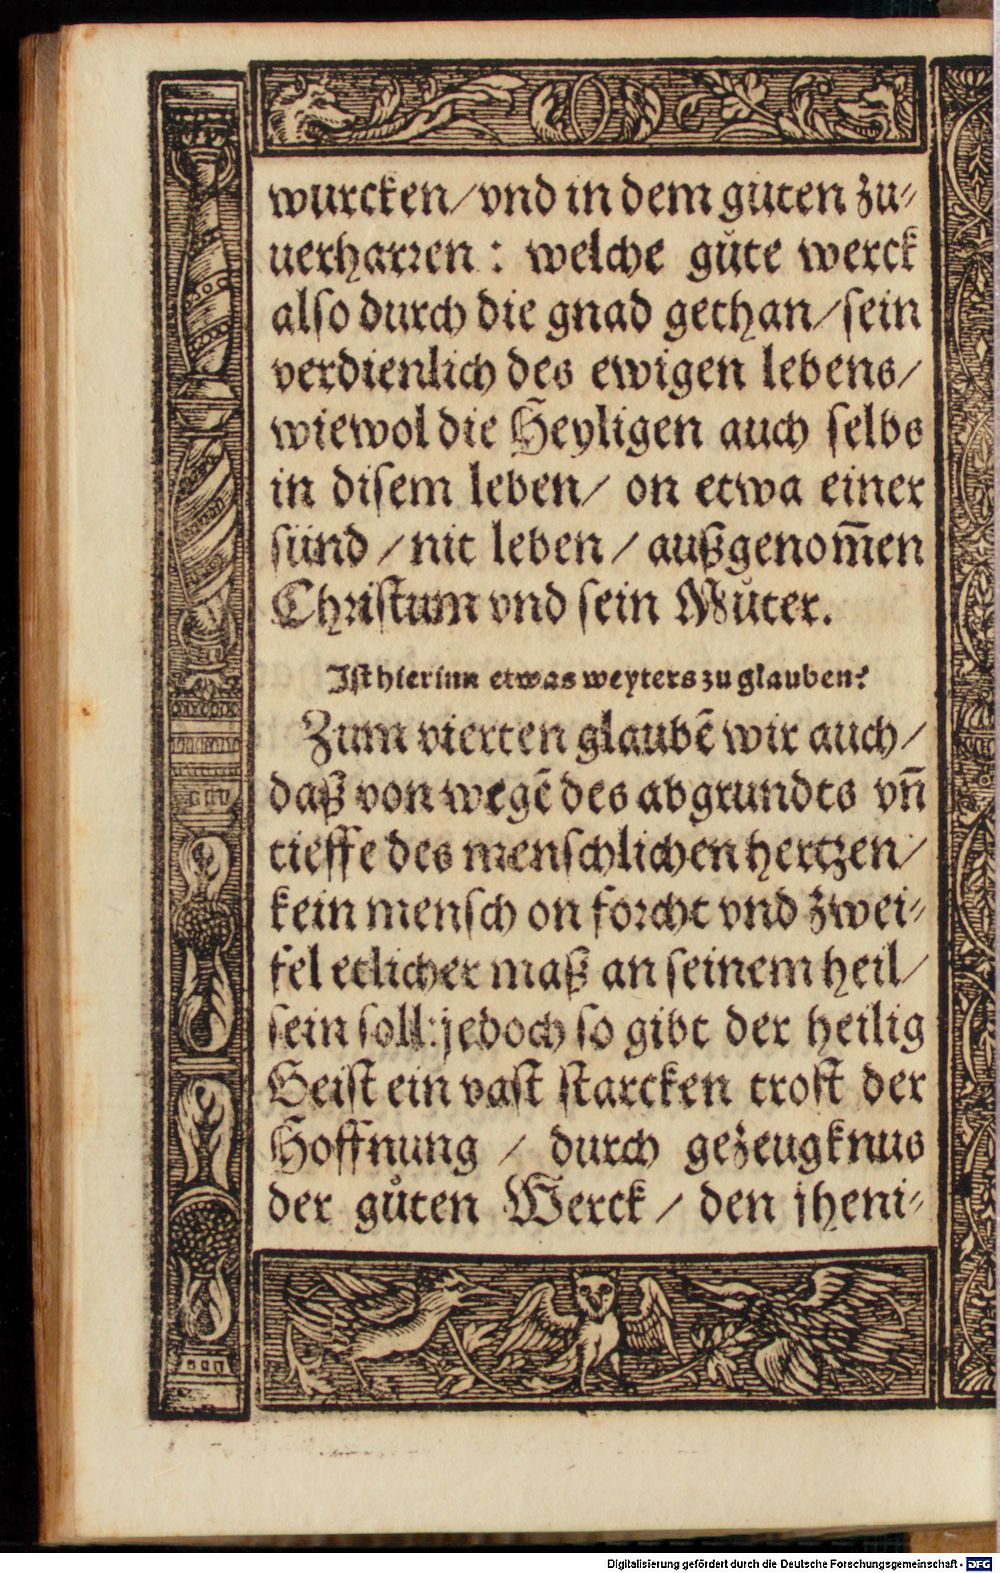 wurcken/vnd in dem gůten zu⸗
uerharꝛen : welche gůte werck
also durch die gnad gethan/sein
verdienlich des ewigen lebens/
wiewol die Heyligen auch selbs
in disem leben/ on etwa einer
sünd /nit leben / außgenom̅en
Chꝛistum vnd sein Můter.
Ist hierinn etwas weyters zu glauben?
Zum vierten glaubē wir auch/
daß von wegē des abgrundts vn̄
tieffe des menschlichen hertzen/
kein mensch on foꝛcht vnd zwei⸗
fel etlicher maß an seinem heil/
sein soll:jedoch so gibt der heilig
Geist ein vast starcken trost der
Hoffnung / durch gezeugknus
der gůten Werck / den jheni⸗
Digitalisierung gefördert durch die Deutsche Forschungsgemeinschaft - DFG